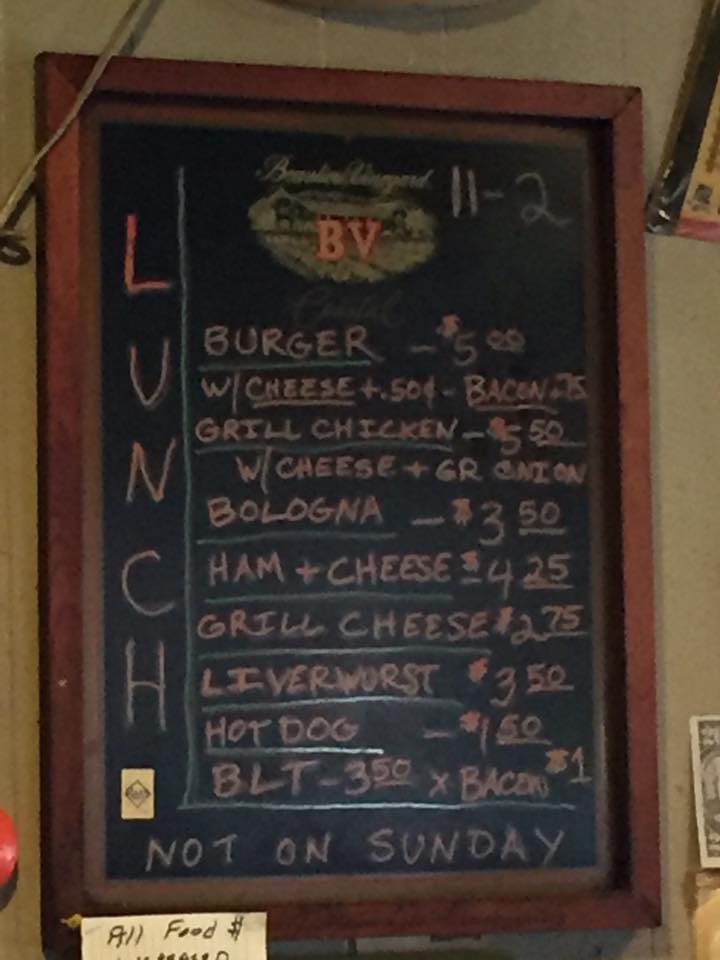 Beaulieu Vineyard
BV
11-2
Coastal
LUNCH
BURGER - $5.00
W/CHEESE +.50¢ - BACON +.75
GRILL CHICKEN - $5.50
W/CHEESE + GR ONION
BOLOGNA - $3.50
HAM + CHEESE $4.25
GRILL CHEESE $2.75
LIVERWURST $3.50
HOT DOG - $1.50
BLT - 3.50 x BACON $1
NOT ON SUNDAY
All Food $